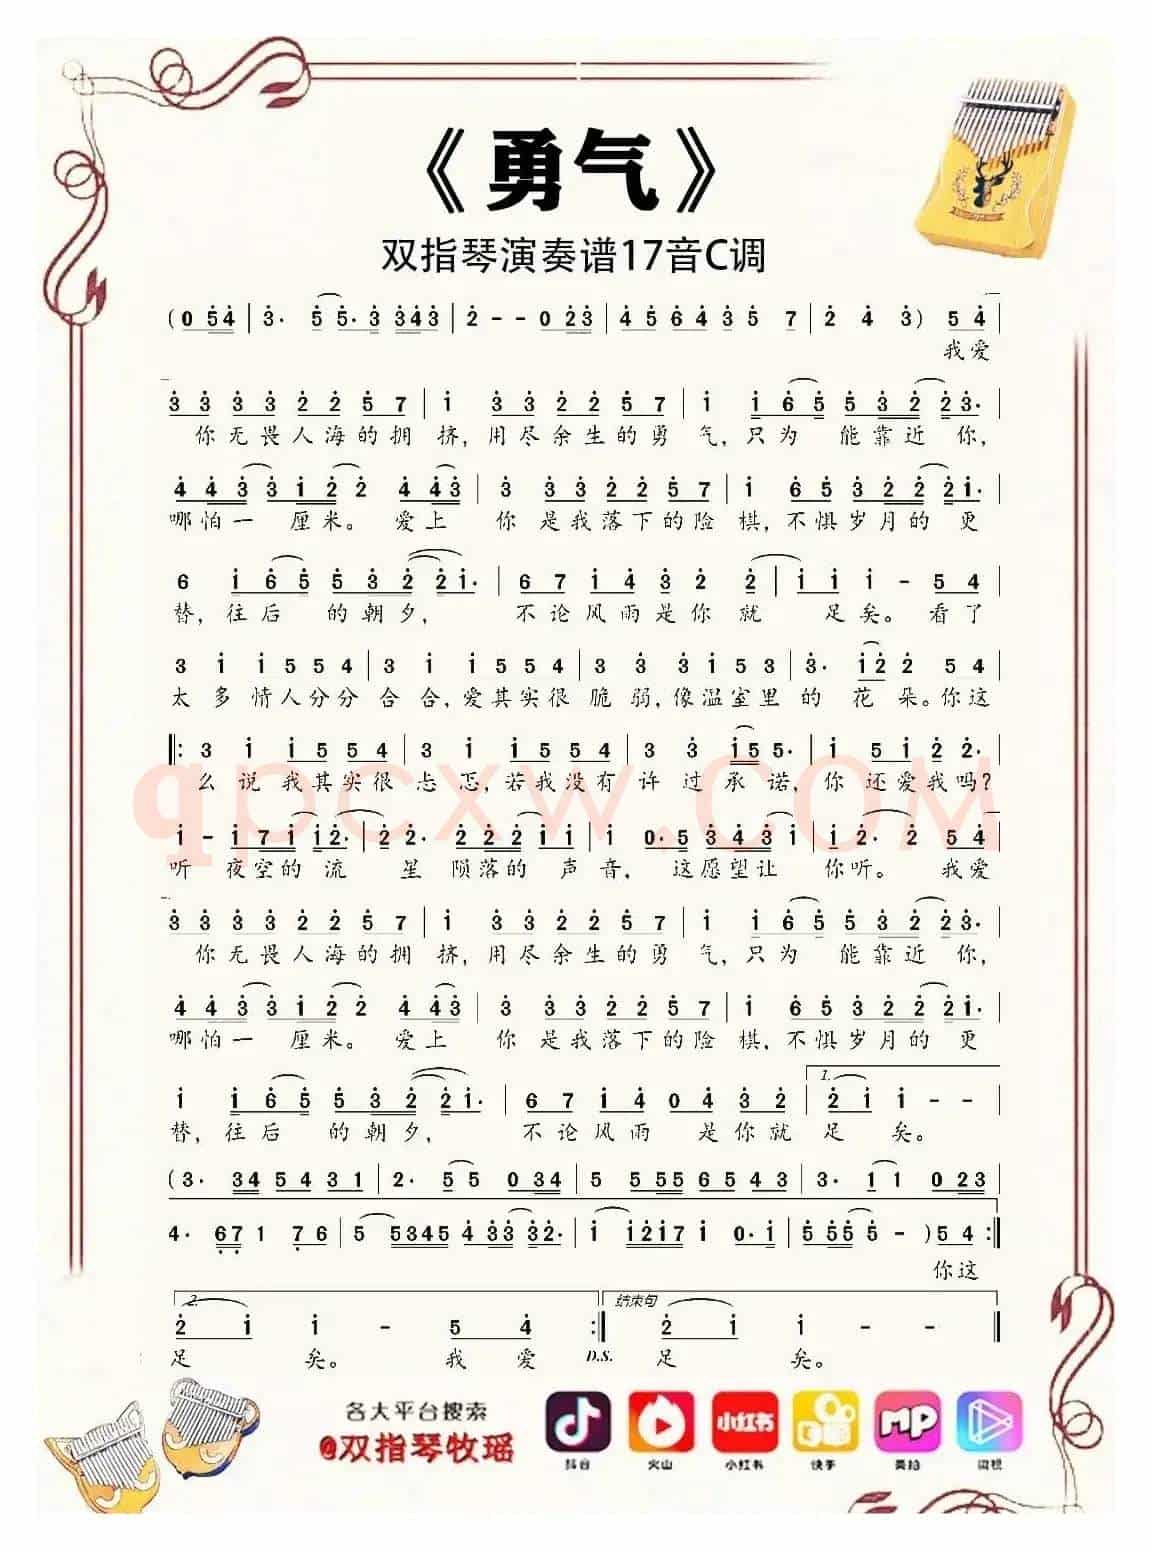 《勇气》
双指琴演奏谱17音C调
(0 5 4 | 3· 5 5· 3 3 4 3 | 2 - - 0 2 3 | 4 5 6 4 3 5 7 | 2 4 3) 5 4 |
我爱
3 3 3 3 2 2 5 7 | 1 3 3 2 2 5 7 | 1 1 6 5 5 3 2 2 3· |
你无畏人海的拥挤,用尽余生的勇气,只为能靠近你,
4 4 3 3 1 2 2 4 4 3 | 3 3 3 2 2 5 7 | 1 6 5 3 2 2 2 1· |
哪怕一厘米。爱上你是我落下的险棋,不惧岁月的更
6 1 6 5 5 3 2 2 1· | 6 7 1 4 3 2 2 | 1 1 1 - 5 4 |
替,往后的朝夕,不论风雨是你就足矣。看了
3 1 1 5 5 4 | 3 1 1 5 5 4 | 3 3 3 1 5 3 | 3· 1 2 2 5 4 |
太多情人分分合合,爱其实很脆弱,像温室里的花朵。你这
‖: 3 1 1 5 5 4 | 3 1 1 5 5 4 | 3 3 1 5 5· | 1 5 1 2 2· |
么说我其实很忐忑,若我没有许过承诺,你还爱我吗?
qpcxw.COM
1 - 1 7 1 1 2· | 2 2· 2 2 2 1 1 | 1 0· 5 3 4 3 1 | 1 2· 2 5 4 |
听夜空的流星陨落的声音,这愿望让你听。我爱
3 3 3 3 2 2 5 7 | 1 3 3 2 2 5 7 | 1 1 6 5 5 3 2 2 3· |
你无畏人海的拥挤,用尽余生的勇气,只为能靠近你,
4 4 3 3 1 2 2 4 4 3 | 3 3 3 2 2 5 7 | 1 6 5 3 2 2 2 1· |
哪怕一厘米。爱上你是我落下的险棋,不惧岁月的更
1.
1 1 6 5 5 3 2 2 1· | 6 7 1 4 0 4 3 2 | 2 1 1 - - |
替,往后的朝夕,不论风雨是你就足矣。
(3· 3 4 5 4 3 1 | 2· 5 5 0 3 4 | 5 5 5 5 6 5 4 3 | 3· 1 1 0 2 3
4· 6 7 1 7 6 | 5 5 3 4 5 4 3 3 3 2· | 1 1 2 1 7 1 0· 1 | 5 5 5 5 5 - ) 5 4 :‖
你这
2. 结束句
2 1 1 - 5 4 :‖ 2 1 1 - - ‖
足矣。我爱 D.S. 足矣。
各大平台搜索
@双指琴牧瑶
小红书 MP
抖音 火山 小红书 快手 美拍 微视